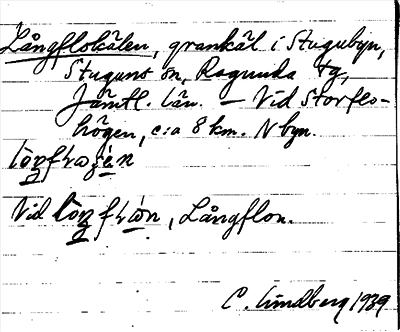 Långflokälen, grankäl i Stugubyn,
Stuguns sn, Ragunda tg,
Jämtl. län. — Vid Storflo-
högen, c:a 8 km. N byn.
Vid , Långflon.
C. Lundberg 1939